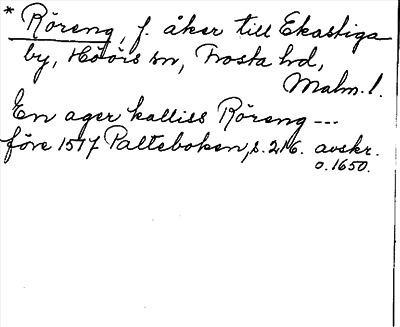 * Röreng, f. åker till Ekastiga
by, Höörs sn, Frosta hd,
Malm. l.
En ager kalliss Röreng ---
före 1517 Palteboken, s. 216. avskr.
o. 1650.